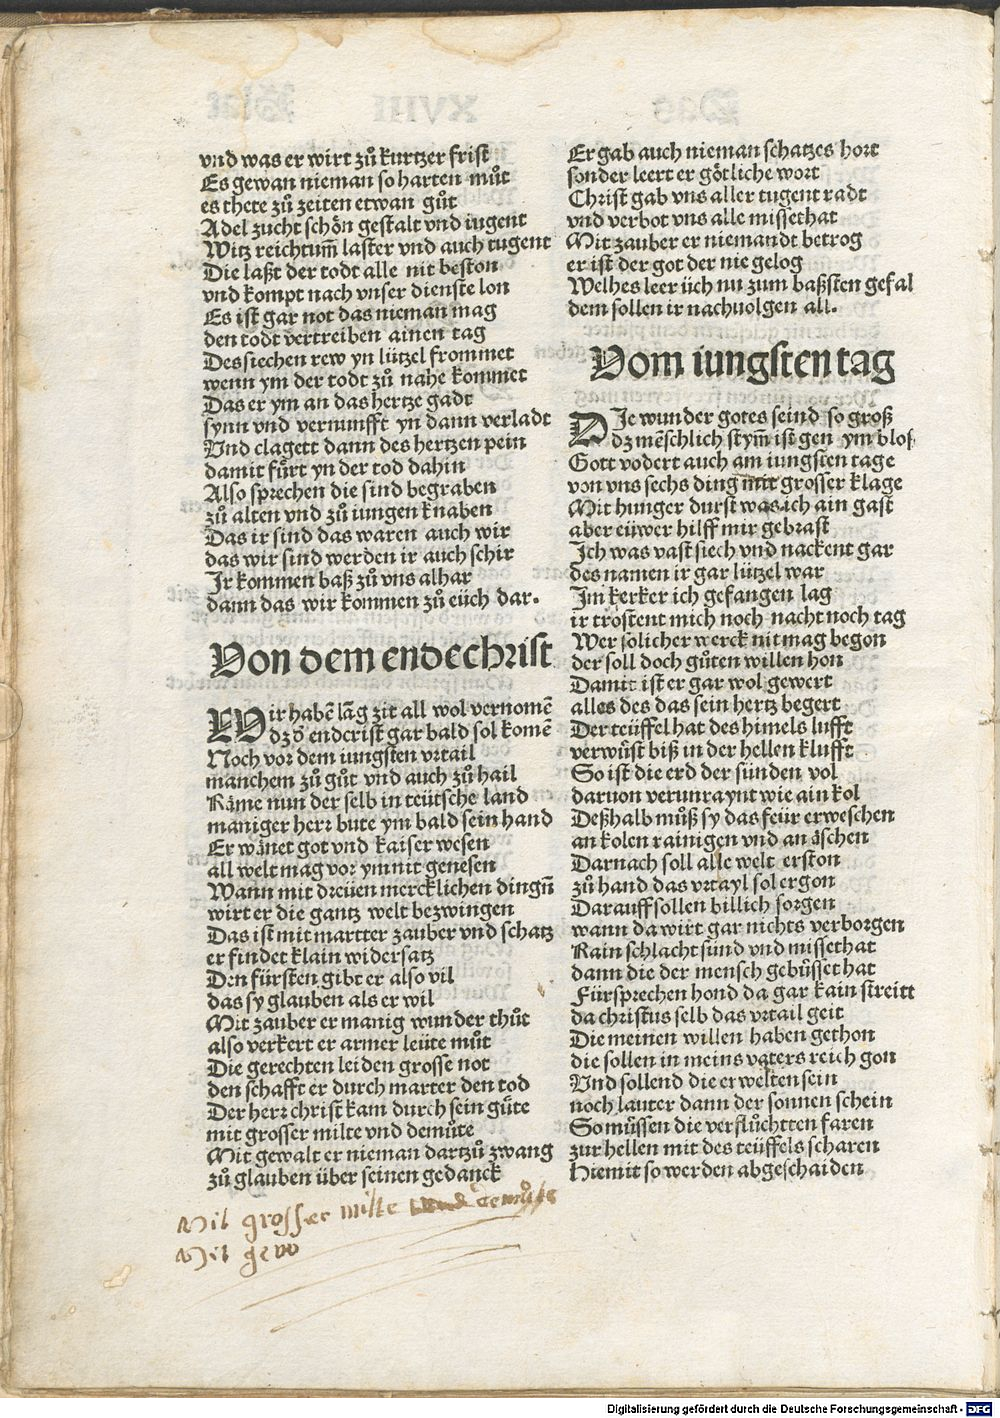 vnd was er wirt zů kurtzer frist
Es gewan nieman so harten můt
es thete zů zeiten etwan gůt
Adel zucht schön gestalt vnd iugent
Witz reichtum̃ laster vnd auch tugent
Die laßt der todt alle nit beston
vnd kompt nach vnser dienste lon
Es ist gar not das nieman mag
den todt vertreiben ainen tag
Des siechen rew yn lützel frommet
wenn ym der todt zů nahe kommet
Das er ym an das hertze gadt
synn vnd vernunfft yn dann verladt
Vnd clagett dann des hertzen pein
damit fůrt yn der tod dahin
Also sprechen die sind begraben
zů alten vnd zů iungen knaben
Das ir sind das waren auch wir
das wir sind werden ir auch schir
Ir kommen baß zů vns alhar
dann das wir kommen zů eüch dar.
Von dem endechrist
WIr habẽ lãg zit all wol vernomẽ
dz ð endcrist gar bald sol komẽ
Noch vor dem iungsten vrtail
manchem zů gůt vnd auch zů hail
Käme nun der selb in teütsche land
maniger herr bute ym bald sein hand
Er wänet got vnd kaiser wesen
all welt mag vor ym nit genesen
Wann mit dreüen mercklichen dingñ
wirt er die gantz welt bezwingen
Das ist mit martter zauber vnd schatz
er findet klain widersatz
Den fürsten gibt er also vil
das sy glauben als er wil
Mit zauber er manig wunder thůt
also verkert er armer leüte můt
Die gerechten leiden grosse not
den schafft er durch marter den tod
Der herr christ kam durch sein güte
mit grosser milte vnd demüte
Mit gewalt er nieman dartzů zwang
zů glauben über seinen gedanck
Mit grosser milte vnd demůte
Mit gevo
Er gab auch nieman schatzes hort
sonder leert er götliche wort
Christ gab vns aller tugent radt
vnd verbot vns alle missethat
Mit zauber er niemandt betrog
er ist der got der nie gelog
Welhes leer üch nu zum baßsten gefal
dem sollen ir nachuolgen all.
Vom iungsten tag
DIe wunder gotes seind so groß
dz mẽschlich stym̃ ist gen ym blos
Gott vodert auch am iungsten tage
von vns sechs ding mit grosser klage
Mit hunger durst was ich ain gast
aber eüwer hilff mir gebrast
Ich was vast siech vnd nackent gar
des namen ir gar lützel war
Im kerker ich gefangen lag
ir trostent mich noch nacht noch tag
Wer solicher werck nit mag begon
der soll doch gůten willen hon
Damit ist er gar wol gewert
alles des das sein hertz begert
Der teüffel hat des himels lufft
verwůst biß in der hellen klufft
So ist die erd der sünden vol
daruon verunraynt wie ain kol
Deßhalb můß sy das feür erweschen
an kolen rainigen vnd an äschen
Darnach soll alle welt erston
zů hand das vrtayl sol ergon
Darauff sollen billich sorgen
wann da wirt gar nichts verborgen
Kain schlacht sünd vnd missethat
dann die der mensch gebüsset hat
Fürsprechen hond da gar kain streitt
da christus selb das vrtail geit
Die meinen willen haben gethon
die sollen in meins vaters reich gon
Vnd sollend die erwelten sein
noch lauter dann der sonnen schein
So müssen die verflůchtten faren
zur hellen mit des teüffels scharen
Hiemit so werden abgeschaiden
Digitalisierung gefördert durch die Deutsche Forschungsgemeinschaft - DFG